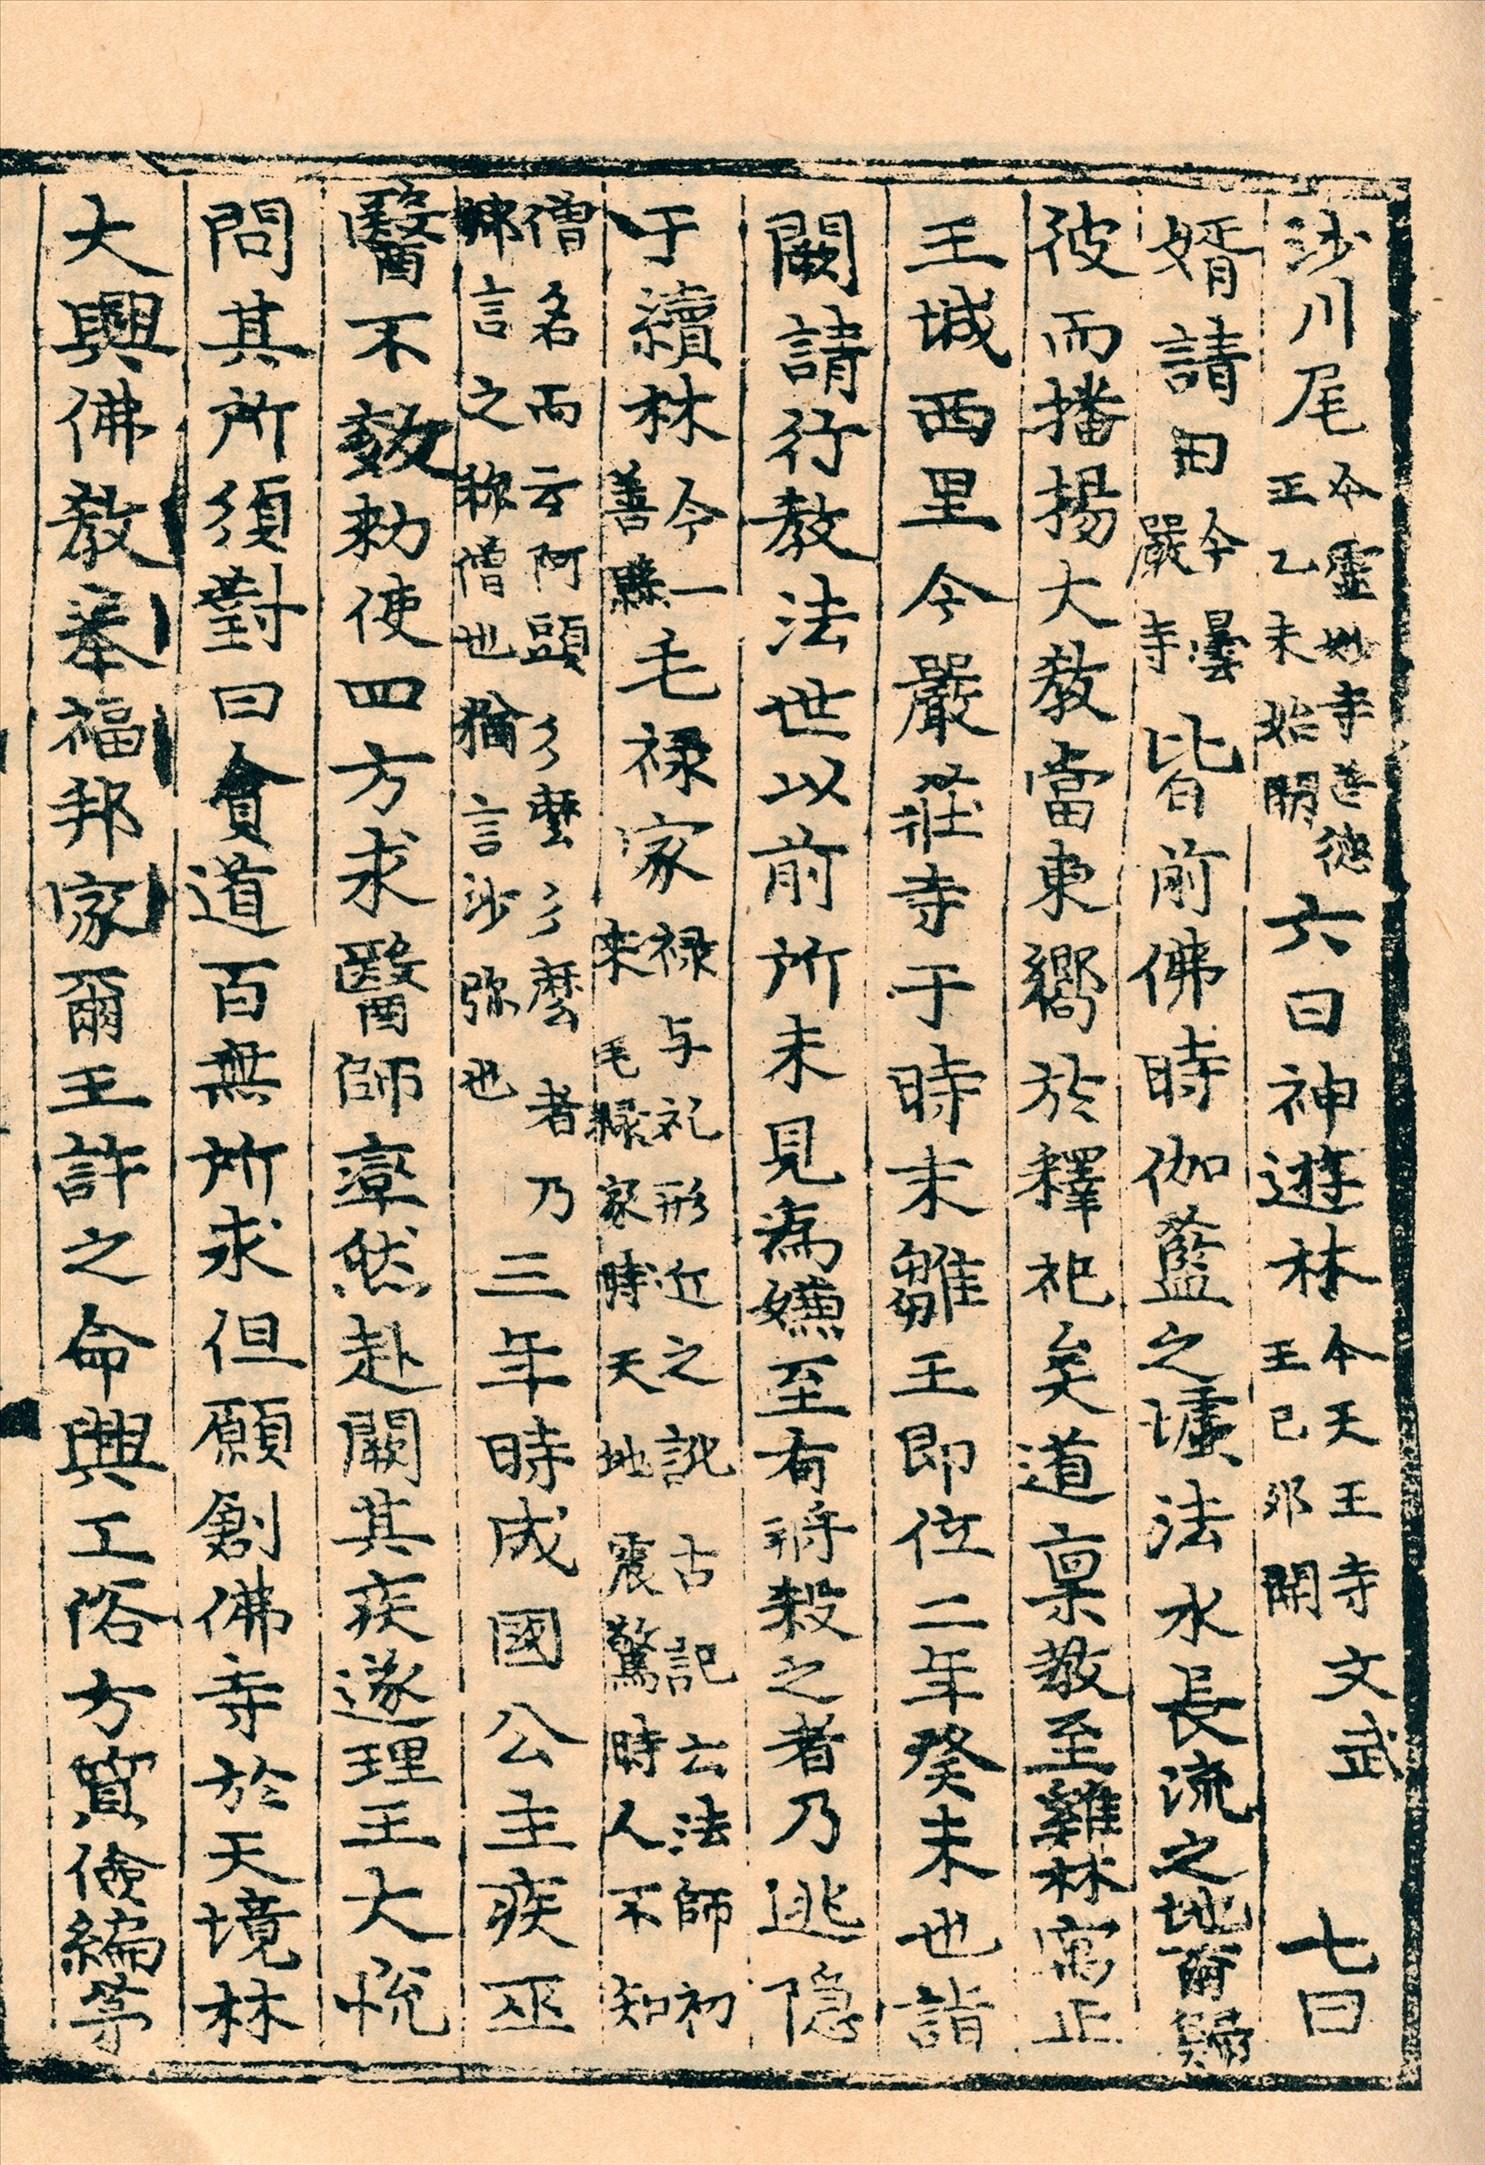 沙川尾今靈妙寺善德王乙未始開六曰神遊林今天王寺文武王己卯開七曰
婿請田今曇嚴寺皆前佛時伽藍之墟法水長流之地爾歸
彼而播揚大敎當東嚮於釋祀矣道禀敎至雞林寓止
王城西里今嚴莊寺于時未雛王即位二年癸未也詣
闕請行敎法世以前所未見爲嫌至有將殺之者乃逃隱
于續林今一善縣毛禄家禄与礼形近之訛古記云法師初來毛禄家時天地震驚時人不知
僧名而云阿頭彡麽彡麽者乃鄕言之称僧也猶言沙弥也三年時成國公主疾巫
醫不效勑使四方求醫師率然赴闕其疾遂理王大悅
問其所須對曰貧道百無所求但願創佛寺於天境林
大興佛敎奉福邦家爾王許之命興工俗方質儉編茅